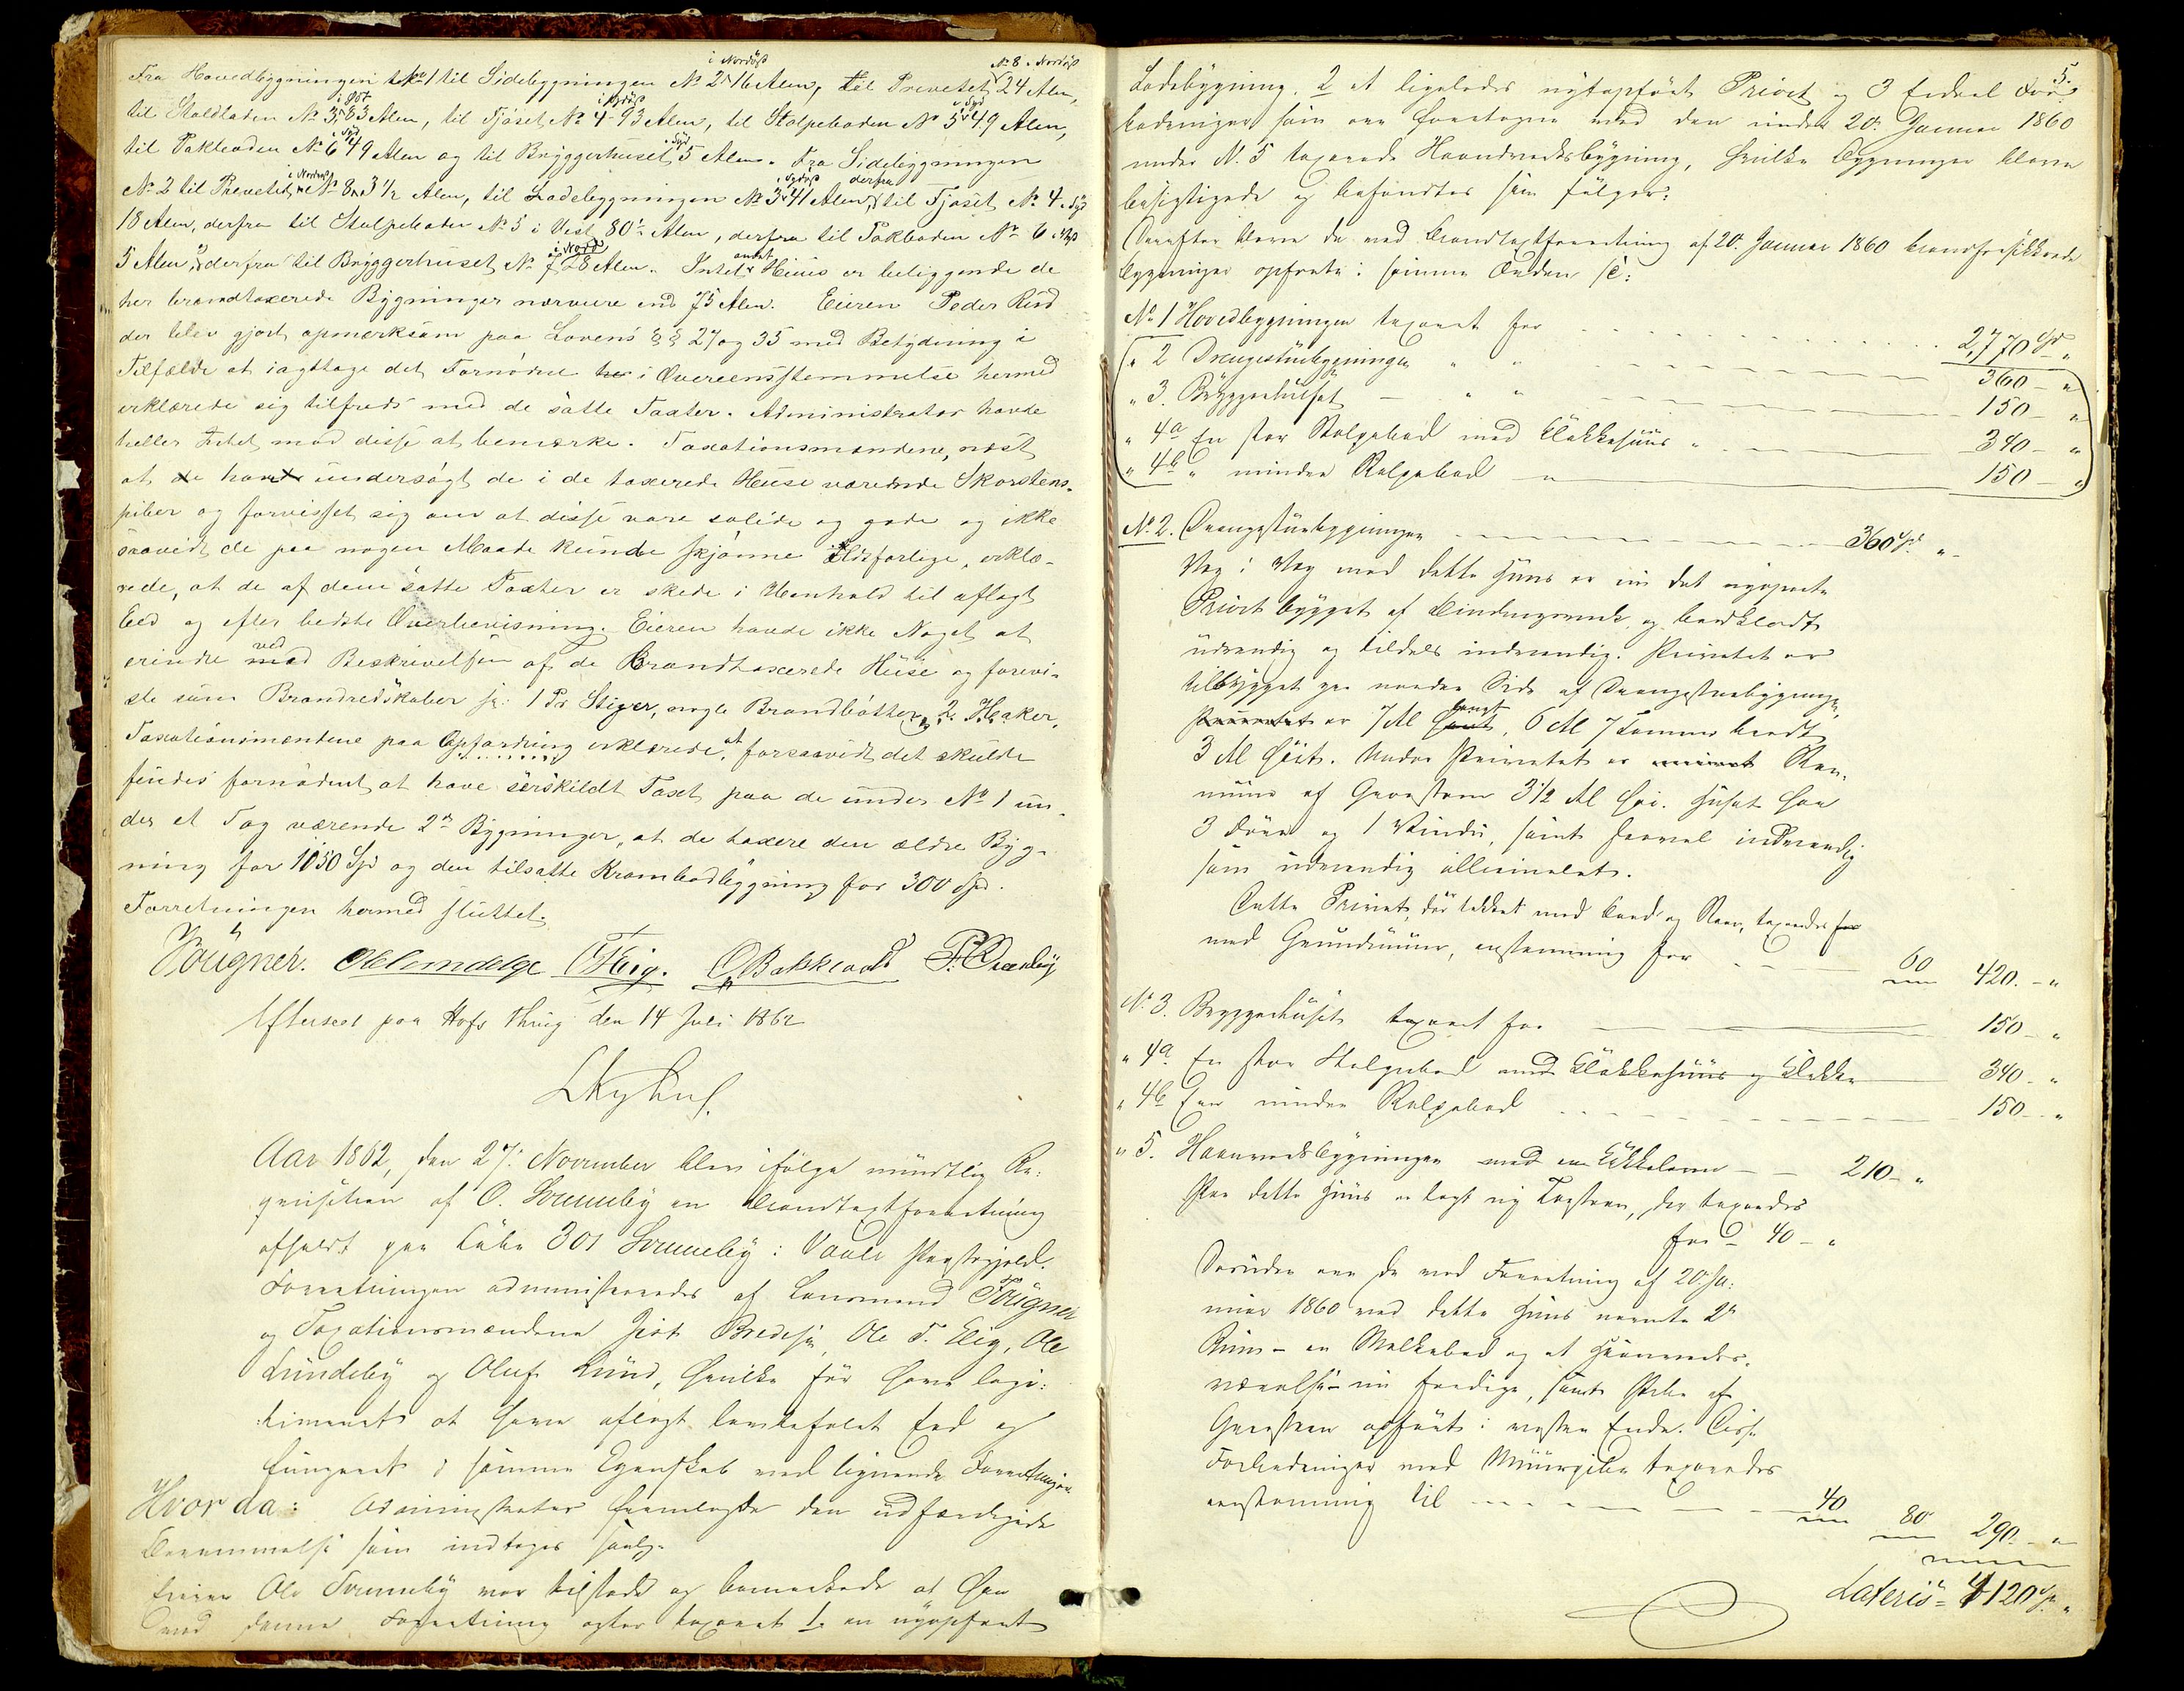 Fra Hovedbygningen No 1 til Sidebygningen No 2 i Nordöst 16 Alen, til Prevetet No 8 i Nordöst 24 Alen,
til Staldladen No 3 i Öst 83 Alen, til Fjöset No 4 i Sydöst 93 Alen, til Stolpeboden No 5 i Syd 49 Alen,
til Pakboden No 6 i Syd 49 Alen og til Bryggerhuset i Syd 5 Alen. Fra Sidebygningen
No 2 til Prevetet i Nordost No 8 3 1/2 Alen, til Ladebygningen No 3 i Sydost 41 Alen, derfra til Fjöset No 4 i Syd
18 Alen, derfra til Stolpeboden No 5 i Vest 80 Alen, derfra til Pakboden No 6
5 Alen, derfra til Bryggerhuset No 7 i Nord 28 Alen. Intet andet Huus er beliggende de
her brandtaxerede Bygninger nærmere end 75 Alen. Eieren Peder Rud
der blev gjort opmerksom paa Lovens §§ 27 og 35 med Betydning i
Tilfælde at iagttage det Fornödne her i Overeensstemmelse hermed
erklærede sig tilfreds med de satte Taxter. Administrator havde
heller Intet mod disse at bemærke. Taxationsmændene, næst
at de have undersögt de i de taxerede Huse værende Skorstens-
piber og forvisset sig om at disse vare solide og gode og ikke
saavidt de paa nogen Maade kunde skjönne Ildsfarlige, erklæ-
rede, at de af dem satte Taxter er skede i Henhold til aflagt
Eed og efter bedste Overbeviisning. Eieren havde ikke Noget at
erindre ved Beskrivelsen af de Brandtaxerede Huse og forevi-
ste som Brandredskaber 1 Pr Stiger, nogle Brandbötter, 2 Haker.
Taxationsmændene paa Opfordring erklærede, at forsaavidt det skulde
findes fornödent at have særskildt Taxt paa de under No 1 un-
der et Tag værende 2de Bygninger, at de taxere den ældre Byg-
ning for 1050 Spd og den tilsatte Krambodbygning for 300 Spd.
Forretningen hermed sluttet.
Fougner. O. Bakkerud
Efterseet paa Hofs Thing den 14 Juli 1862
Aar 1862, den 27. November blev ifölge mündtlig Re-
quisition af O. Srumeby en Brandtaxtforretning
afholdt paa Löbe 301 Srumeby i Vaale Præstegjeld.
Forretningen administreredes af Lensmand Fougner
og Taxationsmændene Bredesen, Ole T. Elig, Ole
Lundeby og Oluf Lund, hvilke för have legi-
timeret at have aflagt Eed og
fungeret i samme Egenskab ved lignende Forretninger
Hvor da: Administrator fremlagde den udfærdigede
Berammelse som indtages
Eieren Ole Srumeby var tilstede og bemærkede at han
ved denne Forretning agter taxeret 1. en nyopfört
5.
Ladebygning. 2 et ligeledes nyopfört Privet og 3 Endeel For-
bedringer som ere foretagne med den under 20 Januar 1860
under N. 5 taxerede Haandverksbygning, hvilke Bygninger bleve
besigtigede og befandtes som fölger:
Derefter bleve de ved Brandtaxtforretning af 20. Januar 1860 brandforsikkrede
Bygninger opförte i samme Orden
No 1 Hovedbygningen taxeret for 2,770 Spd "
" 2 Drengestuebygningen " " 360 - "
" 3. Bryggerhuset - " " 150 - "
" 4a En stor Stolpebod med Klokkehuus " 340 - "
" 4b " mindre Stolpebod " 150 - "
No 2. Drengestuebygningen 360 Spd "
Væg i Væg med dette Huus er nu det nyopförte
Privet bygget af Bindingsverk og bordklædt
udvendig og tildels indvendig. Privetet er
tilbygget paa nordre Side af Drengestuebygningen,
Privetet er 7 Al langt, 6 Al 7 Tommer bredt
3 Al höit. Under Privetet er
af Graasteen 3 1/2 Al höi. Huset har
3 Döre og 1 Vindu, samt saavel indvendig
som udvendig
Dette Privet, der tækket med Bord og Steen, taxeredes for
med Grundmuur, enstemmig for 60 420. - "
No 3. Bryggerhuset taxeret for 150 - "
" 4a. En stor Stolpebod med Klokkehuus og Klokke 340 - "
" 4b En mindre Stolpebod 150 - "
" 5. Haanverksbygningen med en Kakkelovn - - 210 - "
Paa dette Huus er lagt ny Tagsteen, der taxeredes
for - 40 - "
Desuden ere de ved Forretning af 20. Ja-
nuar 1860 ved dette Huus nævnte 2de
Rum - en Melkebod og et
værelse nu færdige, samt Pibe af
Graasteen opfört i vestre Ende. Disse
Forbedringer med Muurpibe taxeredes
enstemmig til 40 80 290 - "
Lateris = 4120 Spd "